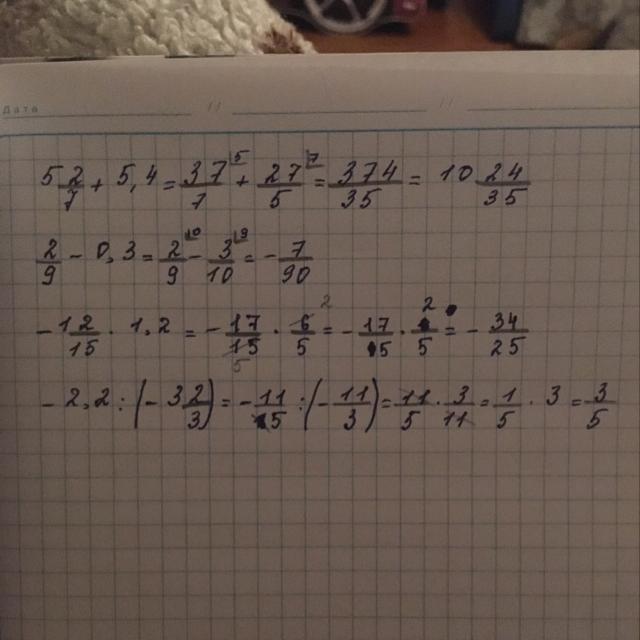 Дата
5 2/7 + 5,4 = 37/7 ⌊5 + 27/5 ⌊7 = 374/35 = 10 24/35
2/9 - 0,3 = 2/9 ⌊10 - 3/10 ⌊9 = - 7/90
- 12/15 · 1,2 = - 17/15 5 · 6/5 2 = - 17/15 · 2/5 = - 34/25
- 2,2 : (- 3 2/3) = - 11/5 : (- 11/3) = 11/5 · 3/11 = 1/5 · 3 = 3/5